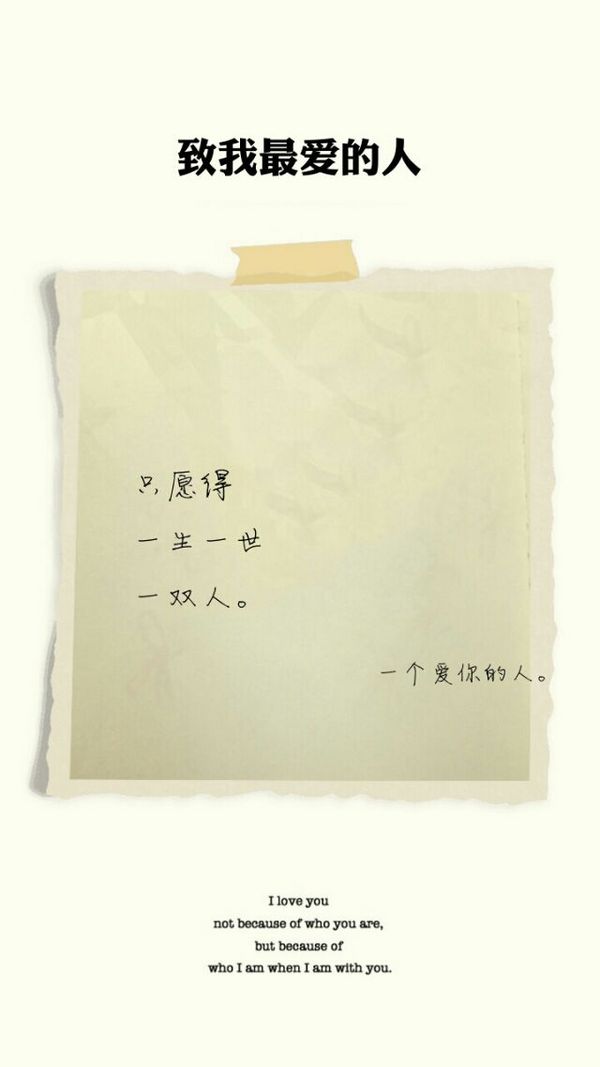 致我最爱的人
只愿得
一生一世
一双人。
一个爱你的人。
I love you
not because of who you are,
but because of
who I am when I am with you.